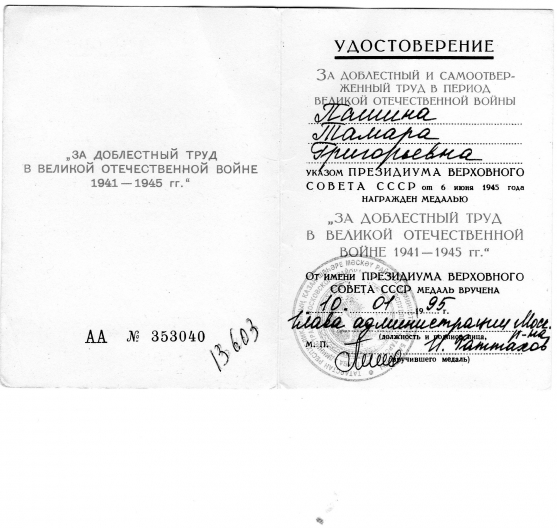 „ЗА ДОБЛЕСТНЫЙ ТРУД
В ВЕЛИКОЙ ОТЕЧЕСТВЕННОЙ ВОЙНЕ
1941—1945 гг.“
АА № 353040
13603
УДОСТОВЕРЕНИЕ
ЗА ДОБЛЕСТНЫЙ И САМООТВЕР-
ЖЕННЫЙ ТРУД В ПЕРИОД
ВЕЛИКОЙ ОТЕЧЕСТВЕННОЙ ВОЙНЫ
Пашина
Тамара
Григорьевна
УКАЗОМ ПРЕЗИДИУМА ВЕРХОВНОГО
СОВЕТА СССР от 6 июня 1945 года
НАГРАЖДЕН МЕДАЛЬЮ
„ЗА ДОБЛЕСТНЫЙ ТРУД
В ВЕЛИКОЙ ОТЕЧЕСТВЕННОЙ
ВОЙНЕ 1941—1945 гг.“
ОТ ИМЕНИ ПРЕЗИДИУМА ВЕРХОВНОГО
СОВЕТА СССР МЕДАЛЬ ВРУЧЕНА
10. 01 1995 г.
Глава администрации Моск.
р-на
(должность и подпись лица,
М. П. И. Фаттахов
вручившего медаль)